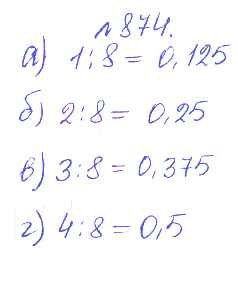 №874.
а) 1:8 = 0,125
б) 2:8 = 0,25
в) 3:8 = 0,375
г) 4:8 = 0,5